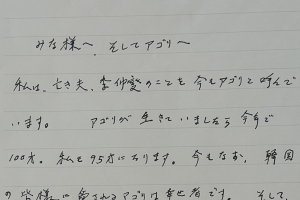 みな様へ、そしてアゴリへ
私は、亡き夫、李仲燮のことを今もアゴリと呼んで
います。 アゴリが生きていましたら今年で
100才。私も95才になります。今もなお、韓国
の皆様に愛されるアゴリは幸せ者です。そして、